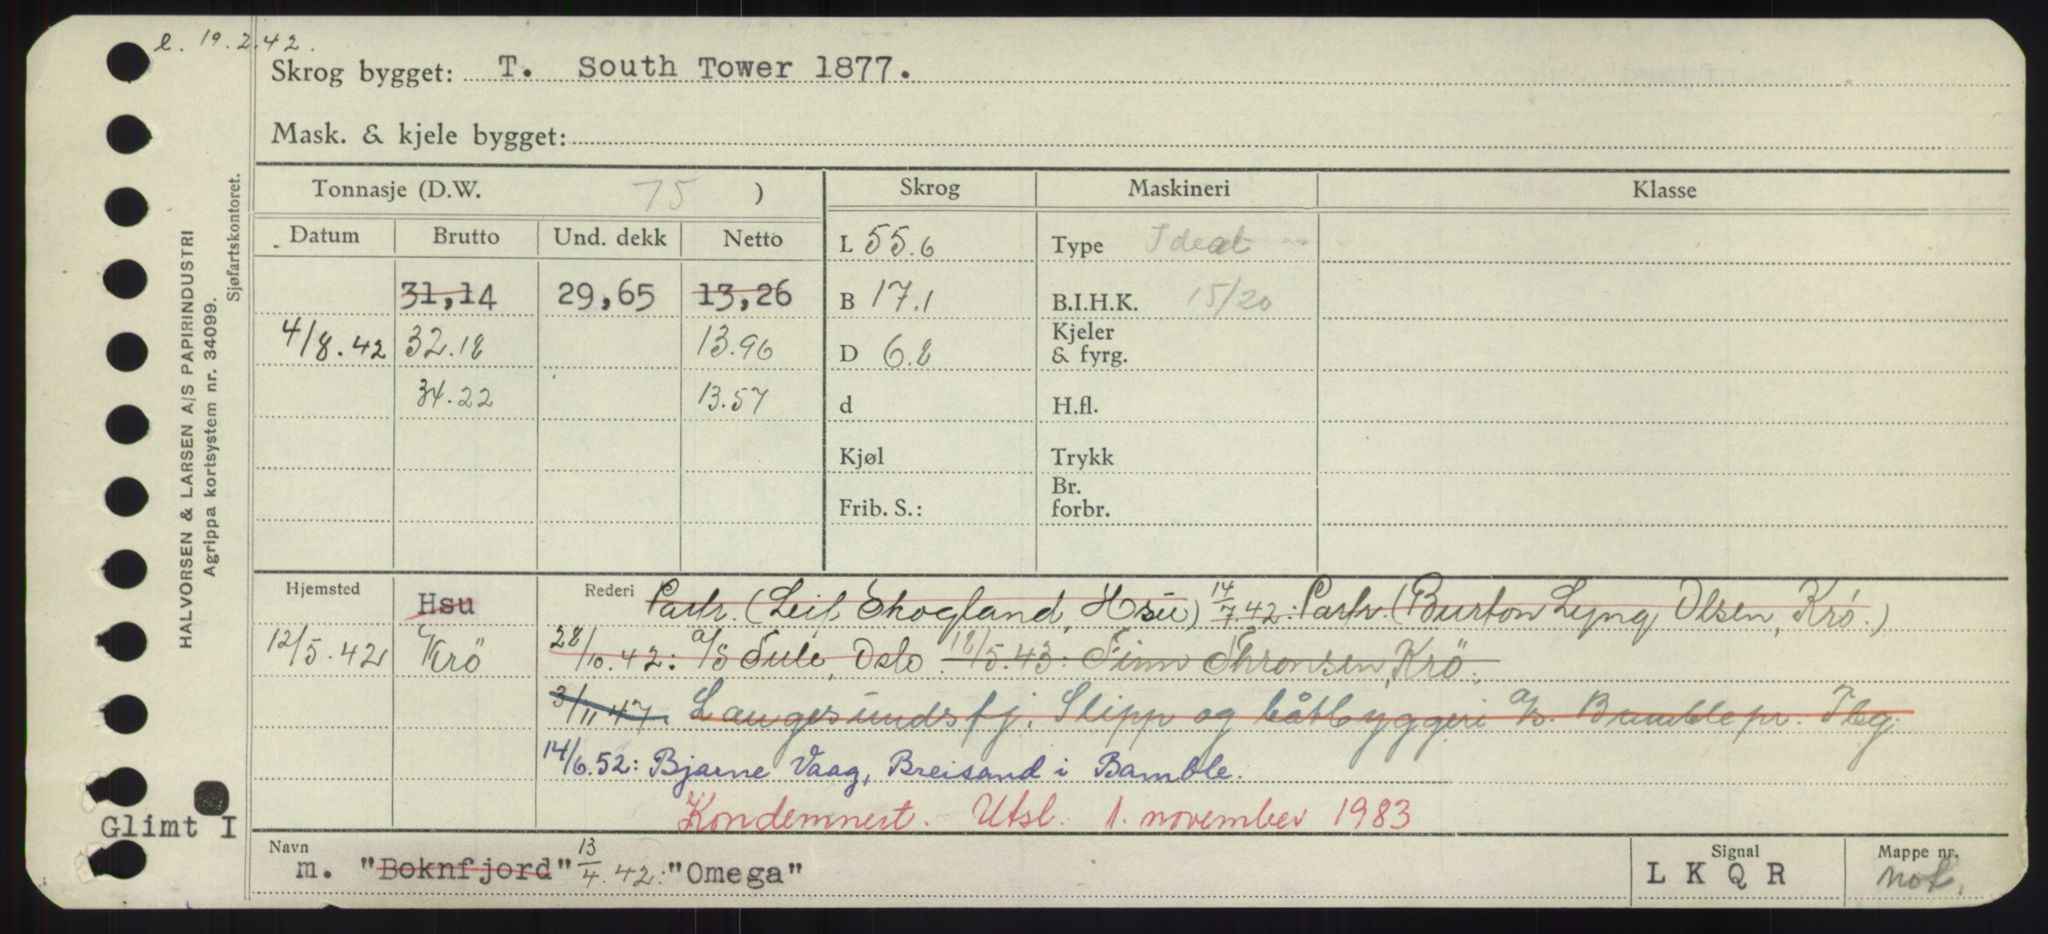 e. 19.2.42.
Skrog bygget: T. South Tower 1877.
Mask. & kjele bygget:
HALVORSEN & LARSEN A/S PAPIRINDUSTRI
Agrippa kortsystem nr. 34099.
Sjøfartskontoret.
Tonnasje (D.W. 75 ) Skrog Maskineri Klasse
Datum Brutto Und. dekk Netto L 55.6 Type Ideal
31,14 29,65 13,26 B 17.1 B.I.H.K. 15/20
4/8.42 32.18 13.96 D 6.8 Kjeler & fyrg.
34.22 13.57 d H.fl.
Kjøl Trykk
Frib. S.: Br. forbr.
Hjemsted Hsu Rederi Partr. (Leif Skogland, Hsu) 14/7.42: Partr. (Burton Lyng Olsen, Krö.)
12/5.42 Krö 28/10.42: A/S Sule, Oslo. 18/5.43: Finn Thronsen, Krö.
3/11 47. Langesundsfj. Slipp og båtbyggeri A/S. Bamble pr.
14/6.52: Bjarne Vaag, Breisand i Bamble.
Kondemnert. Utsl. 1. november 1983
Glimt I
Navn Signal Mappe nr.
m. "Boknfjord" 13/4.42: "Omega" L K Q R not.